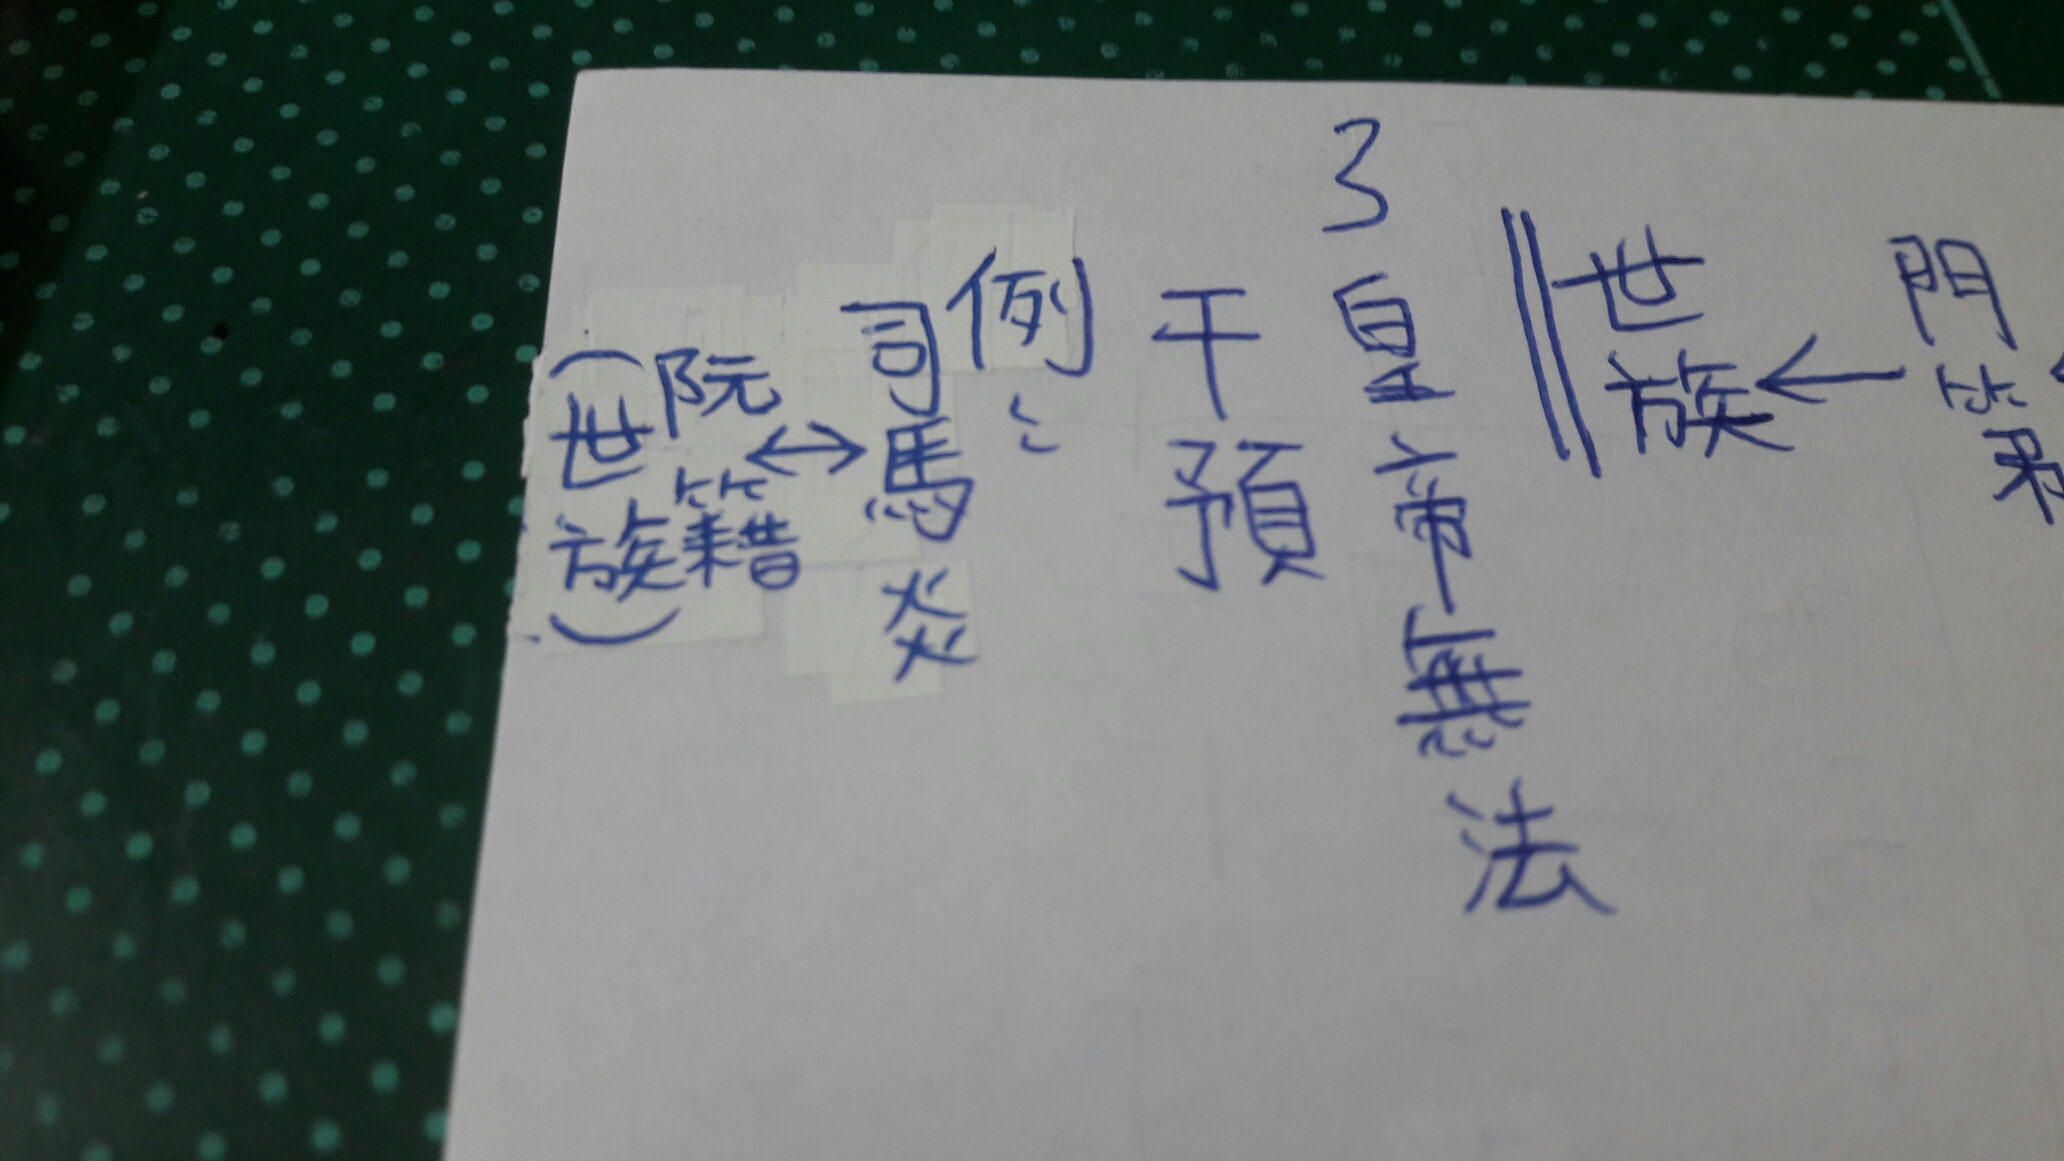 門第
← 世族
3
皇帝無法
干預
例:
司馬炎
↔
阮籍
(世族)